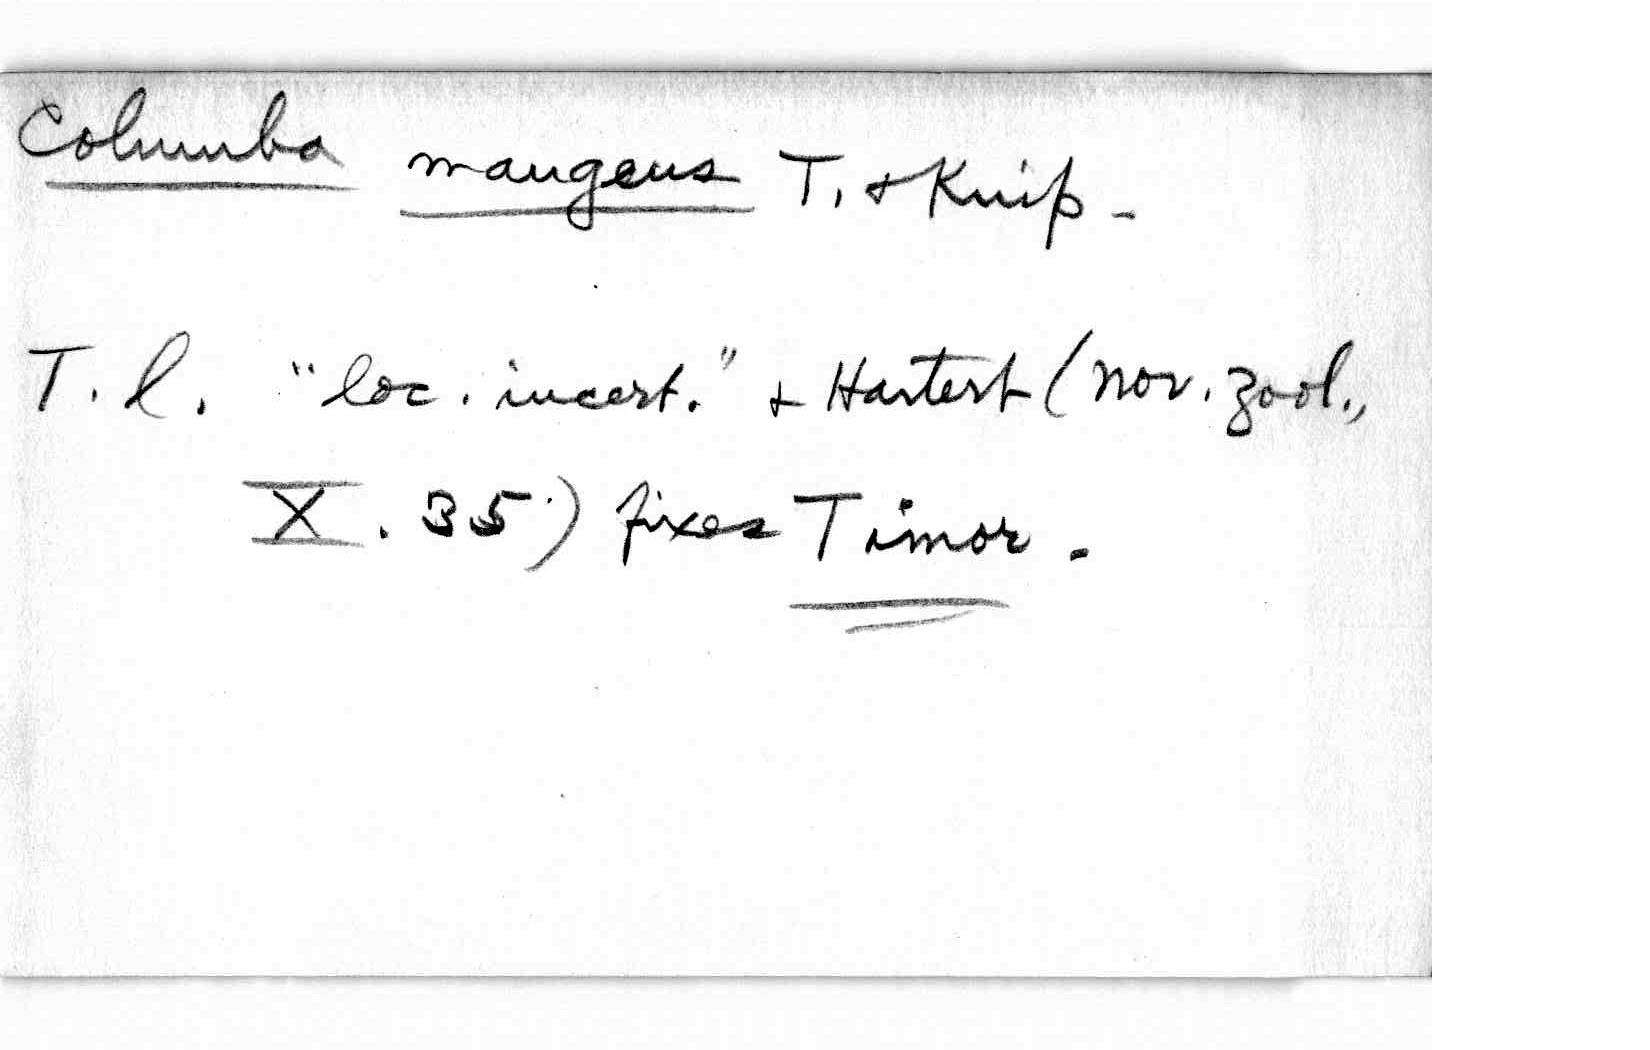 Columba maugeus T. & Knip -
T. l. "loc. incert." & Hartert (Nov. Zool.,
X. 35) fixes Timor.